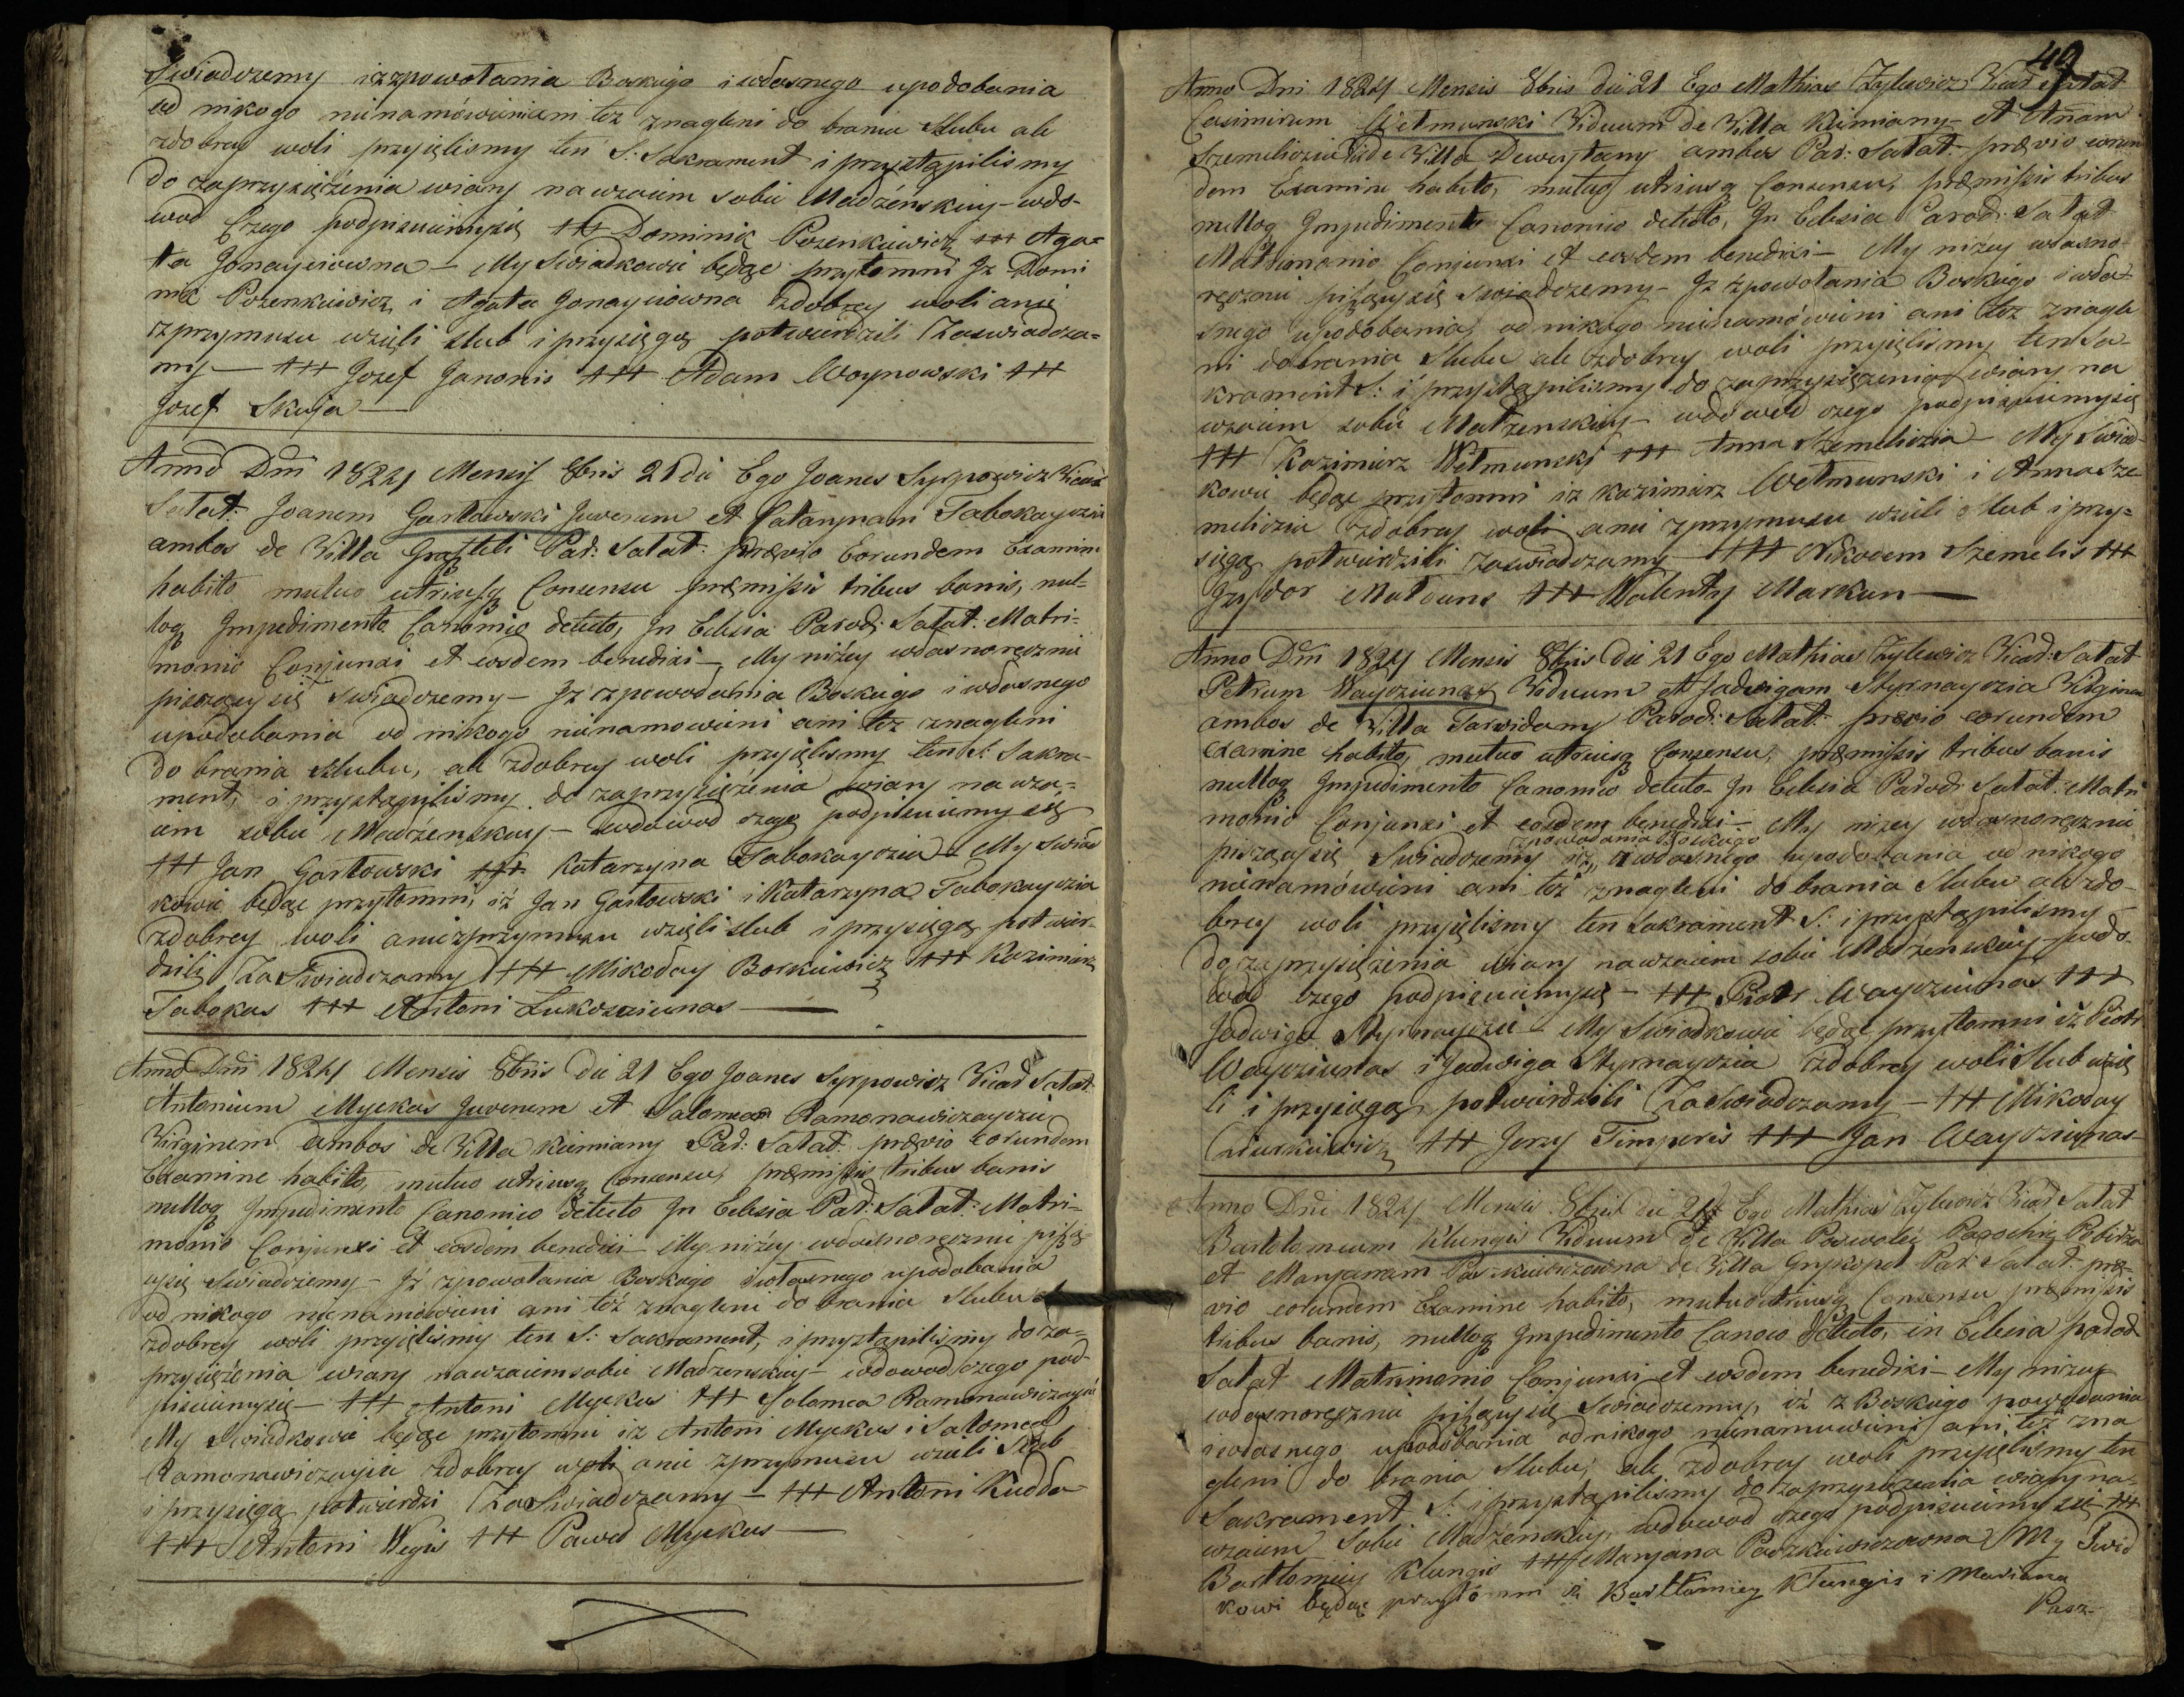 Swiadczemy iż zpowołania Boskiego i własnego upodobania
od nikogo nienamówieni ani też znagleni do brania Slubu ale
zdobrey woli przyięlismy ten S: Sakrament i przystąpilismy
do zaprzysiężenia wiary nawzaiem sobie Madżenskiey – wdo-
wod czego podpisuiemysię +++ Dominik Pozenkiewicz +++ Aga=
ta Jonayciowna – My Swiadkowie będąc przytomni Jż Domi
nik Pozenkiewicz i Agata Jonayciowna zdobrey woli anie
zprzymusu wzięli slub i przysięgą potwierdzili Zaswiadcza=
my – +++ Jozef Janonis +++ Adam Woynowski +++
Jozef Skuja –
Anno Dni 1824 Mensis 8bris 21 die Ego Joanes Syrpowicz Vicar
Satat: Joanem Gasłowski Juvenem et Catarynam Tabokayczia
ambos de Villa Par: Satat: prævio Eorundem Examine
habito mutuo utriusq Consensu præmissis tribus banis, nul-
loq Impedimento Canonico detecto, In Eclesia Paroch: Satat: Matri=
monio Conjunxi et eosdem benedixi – My niżey własnoręcznie
piszącysię swiadczemy – Jż zpowodania Boskiego i własnego
upodobania od nikogo nienamowieni ani też znagleni
do brania slubu, ale zdobrey woli przyięlismy ten S: Sakra-
ment, i przystąpilismy do zaprzysiężenia wiary nawza=
iem sobie Madżenskiey – wdowod czego podpisuiemysię
+++ Jan Gasłowski +++ Katarzyna Tabokayczia – My Swiad
kowie będąc przytomni, iż Jan Gasłowski i Katarzyna Tabokayczia
zdobrey woli aniezprzymusu wzięli slub i przysięgą potwier-
dzili Zaswiadczamy +++ Mikołay Borkiewicz +++ Kazimierz
Tabokas +++ Antoni Łukoszziunas –
Anno Dni 1824 Mensis 8bris Die 21 Ego Joanes Syrpowicz Vicar Satat
Antonium Myckas Juvenem et Salomea Ramonawiczayczia
Virginem ambos de Villa Kiemiany Par: Satat: prævio eorundem
Examine habito, mutuo utriusq Consensu, præmissis tribus banis
nulloq Impedimento Canonico detecto In Eclesia Par: Satat: Matri=
monio Conjunxi et eosdem benedixi – My niżey własnoręcznie piszą-
cysię swiadczemy – Jż zpowołania Boskiego i własnego upodobania
od nikogo nienamówieni ani też znagleni do brania slubu al
zdobrey woli przyięlismy ten S: Sakrament, i przystąpilismy do za=
przysiężenia wiary nawzaiemsobie Madżenskiey – wdowod czego pod-
pisuiemysię – +++ Antoni Myckas +++ Solomea Ramonawiczayci
My Swiadkowie będąc przytomni iż Antoni Myckas i Salomea
Ramonawiczaycia zdobrey woli anie zprzymusu wzieli Slub
i przysięgą potwierdzi Zaswiadczamy – +++ Antoni Kudda
+++ Antoni Wegis +++ Paweł Myckus –
49
Anno Dni 1824 Mensis 8bris die 21 Ego Mathias Zylewicz Vicar Satat
Casimirum Wetmunski Viduum de Villa Kiemiany – et Annam
Szemeliczia de Villa Deweytany ambos Par: Satat: prævio eorun
dem Examine habito, mutuo utriusq Consensu, præmissis tribus
nulloq Impedimento Canonico detecto, In Eclesia Paroch: Satat
Matrimonio Conjunxi et eosdem benedixi – My niżey własno-
ręcznie piszącysię swiadczemy – Jż zpowołania Boskiego i wła-
snego upodobania, od nikogo nienamówieni ani też znagle
ni dobrania slubu ale zdobrey woli przyięlismy ten Sa-
krament S: i przystąpilismy do zaprzysiężenia wiary na
wzaiem sobie Matżenskiey – wdowod czego podpisuiemysię
+++ Kazimierz Wetmunski +++ Anna Szemeliczia – My Swiad-
kowie będąc przytomni iż Kazimierz Wetmunski i Anna Sze
meliczia zdobrey woli anie zprzymusu wzieli slub i przy=
sięgą potwierdzili zaswiadczamy – +++ Nikodem Szemelis +++
Jzydor Matouns +++ Walenty Markun –
Anno Dni 1824 Mensis 8bris Die 21 Ego Mathias Zylewicz Vicar: Satat
Petrum Wayciunas Viduum et Jadwigam Styrnayczia Virginem
ambos de Villa Tarwidamy Paroch: Satat: prævio eorundem
examine habito, mutuo utriusq Consensu, præmissis tribus banis
nulloq Impedimento Canonico detecto In Eclesia Paroch Satat: Matri
monio Conjunxi et eosdem benedixi – My niżey własnoręcznie
zpowodania Boskiego
piszącysię Swiadczemy iż i własnego upodobania od nikogo
nienamówieni ani też znagleni dobrania Slubu ale zdo-
brey woli przyięlismy ten Sakrament S: i przystąpilismy
do zaprzysiężenia wiary nawzaiem sobie Madżenskiey – wdo-
wod czego podpisuiemysię – +++ Piotr Waycziunas +++
Jadwiga Styrnayczia – My Swiadkowie będąc przytomni iż Piotr
Waycziunas i Jadwiga Styrnayczia zdobrey woli Slub wzię
li i przysięgą potwierdzili Zaswiadczamy – +++ Mikołay
Cziurkiewicz +++ Jerzy Timperis +++ Jan Waycziunas –
Anno Dni 1824 Mensis 8bris die 21 Ego Mathias Zylewicz Vicar Satat
Bartolomeum Klungis Viduum de Villa Poswolei Parochiæ Pobirża
et Maryannam Paszkiewiczowna de Villa Par: Satat: præ-
vio eorundem Examine habito, mutuo utriusq Consensu præmissis
tribus banis, nulloq Impedimento Canoico Detecto, in Eclesia paroch
Satat Matrimonio Conjunxi et eosdem benedixi – My niżey
własnoręcznie piszącysię Swiadczemy, iż z Boskiego powodania
i własnego upodobania odnikogo nienamuwieni, ani też zna
gleni do brania Slubu, ale zdobrey woli przyięlismy ten
Sakrament S: i przystąpilismy do zaprzysiężenia wiary na-
wzaiem Sobie Madżenskiey, wdowod czego podpisuiemysię +++
Bartłomiey Klungis +++ Maryana Paszkiewiczowna My Swid
kowi będąc przytomni iż Bartłomiey Klungis i Mariana
Pasz-